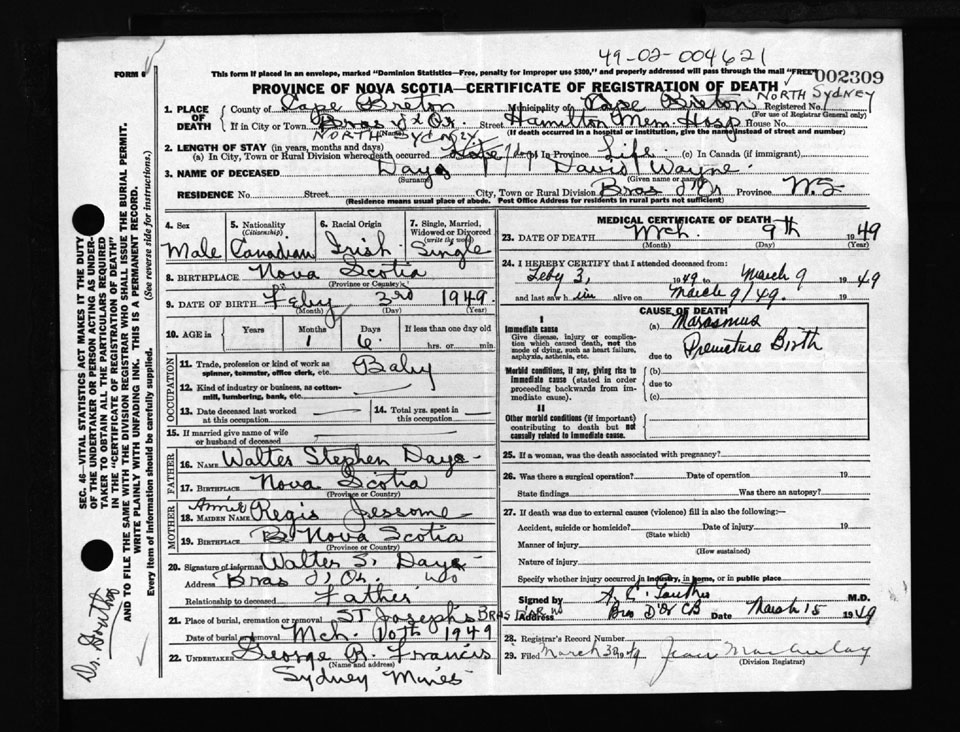 49-02-004621
FORM 6
This form if placed in an envelope, marked "Dominion Statistics—Free, penalty for improper use $300," and properly addressed will pass through the mail "FREE"
002309
PROVINCE OF NOVA SCOTIA—CERTIFICATE OF REGISTRATION OF DEATH
NORTH SYDNEY
1. PLACE OF DEATH
County of Cape Breton Municipality of Cape Breton Registered No.
(For use of Registrar General only)
If in City or Town Bras d'Or. Street Hamilton Mem. Hosp House No.
NORTH (Name) SYDNEY (If death occurred in a hospital or institution, give the name instead of street and number)
2. LENGTH OF STAY (in years, months and days)
(a) In City, Town or Rural Division where death occurred In Province Life (c) In Canada (if immigrant)
3. NAME OF DECEASED Daye David Wayne
(Surname) (Given name or names)
RESIDENCE No. Street City, Town or Rural Division Bras d'Or Province N.S
(Residence means usual place of abode. Post Office Address for residents in rural parts not sufficient)
4. Sex Male
5. Nationality (Citizenship) Canadian
6. Racial Origin Irish
7. Single, Married, Widowed or Divorced (write the word) Single
8. BIRTHPLACE Nova Scotia
(Province or Country)
9. DATE OF BIRTH Feby 3rd 1949
(Month) (Day) (Year)
10. AGE in Years Months Days If less than one day old
1 6 hrs. or min.
OCCUPATION
11. Trade, profession or kind of work as spinner, teamster, office clerk, etc. Baby
12. Kind of industry or business, as cotton-mill, lumbering, bank, etc.
13. Date deceased last worked at this occupation
14. Total yrs. spent in this occupation
15. If married give name of wife or husband of deceased
FATHER
16. NAME Walter Stephen Daye
17. BIRTHPLACE Nova Scotia
(Province or Country)
MOTHER
Annie
18. MAIDEN NAME Regis Jessome
19. BIRTHPLACE Nova Scotia
(Province or Country)
20. Signature of informant Walter S. Daye
Address Bras d'Or. NS
Relationship to deceased Father
21. Place of burial, cremation or removal ST Joseph's BRAS D'OR NS
Date of burial or removal Mch. 10th 1949
22. UNDERTAKER George R. Francis
(Name and address)
Sydney Mines
MEDICAL CERTIFICATE OF DEATH
23. DATE OF DEATH Mch. 9th 1949
(Month) (Day) (Year)
24. I HEREBY CERTIFY that I attended deceased from:
Feby 3, 1949 to March 9 1949
and last saw him alive on March 9/49. 19
CAUSE OF DEATH
I
Immediate cause
Give disease, injury or complication which caused death, not the mode of dying, such as heart failure, asphyxia, asthenia, etc.
(a) Marasmus
due to Premature Birth
Morbid conditions, if any, giving rise to immediate cause (stated in order proceeding backwards from immediate cause).
(b)
due to
(c)
II
Other morbid conditions (if important) contributing to death but not causally related to immediate cause.
25. If a woman, was the death associated with pregnancy?
26. Was there a surgical operation? Date of operation 19
State findings Was there an autopsy?
27. If death was due to external causes (violence) fill in also the following:—
Accident, suicide or homicide? Date of injury 19
(State which)
Manner of injury
(How sustained)
Nature of injury
Specify whether injury occurred in industry, in home, or in public place
Signed by M.D.
Address Bras D'Or CB Date March 15 1949
28. Registrar's Record Number
29. Filed March 30 1949 Jean MacAulay
(Division Registrar)
SEC. 46—VITAL STATISTICS ACT MAKES IT THE DUTY
OF THE UNDERTAKER OR PERSON ACTING AS UNDER-
TAKER TO OBTAIN ALL THE PARTICULARS REQUIRED
IN THE "CERTIFICATE OF REGISTRATION OF DEATH"
AND TO FILE THE SAME WITH THE DIVISION REGISTRAR WHO SHALL ISSUE THE BURIAL PERMIT.
WRITE PLAINLY WITH UNFADING INK. THIS IS A PERMANENT RECORD.
Every item of information should be carefully supplied. (See reverse side for instructions.)
Dr.